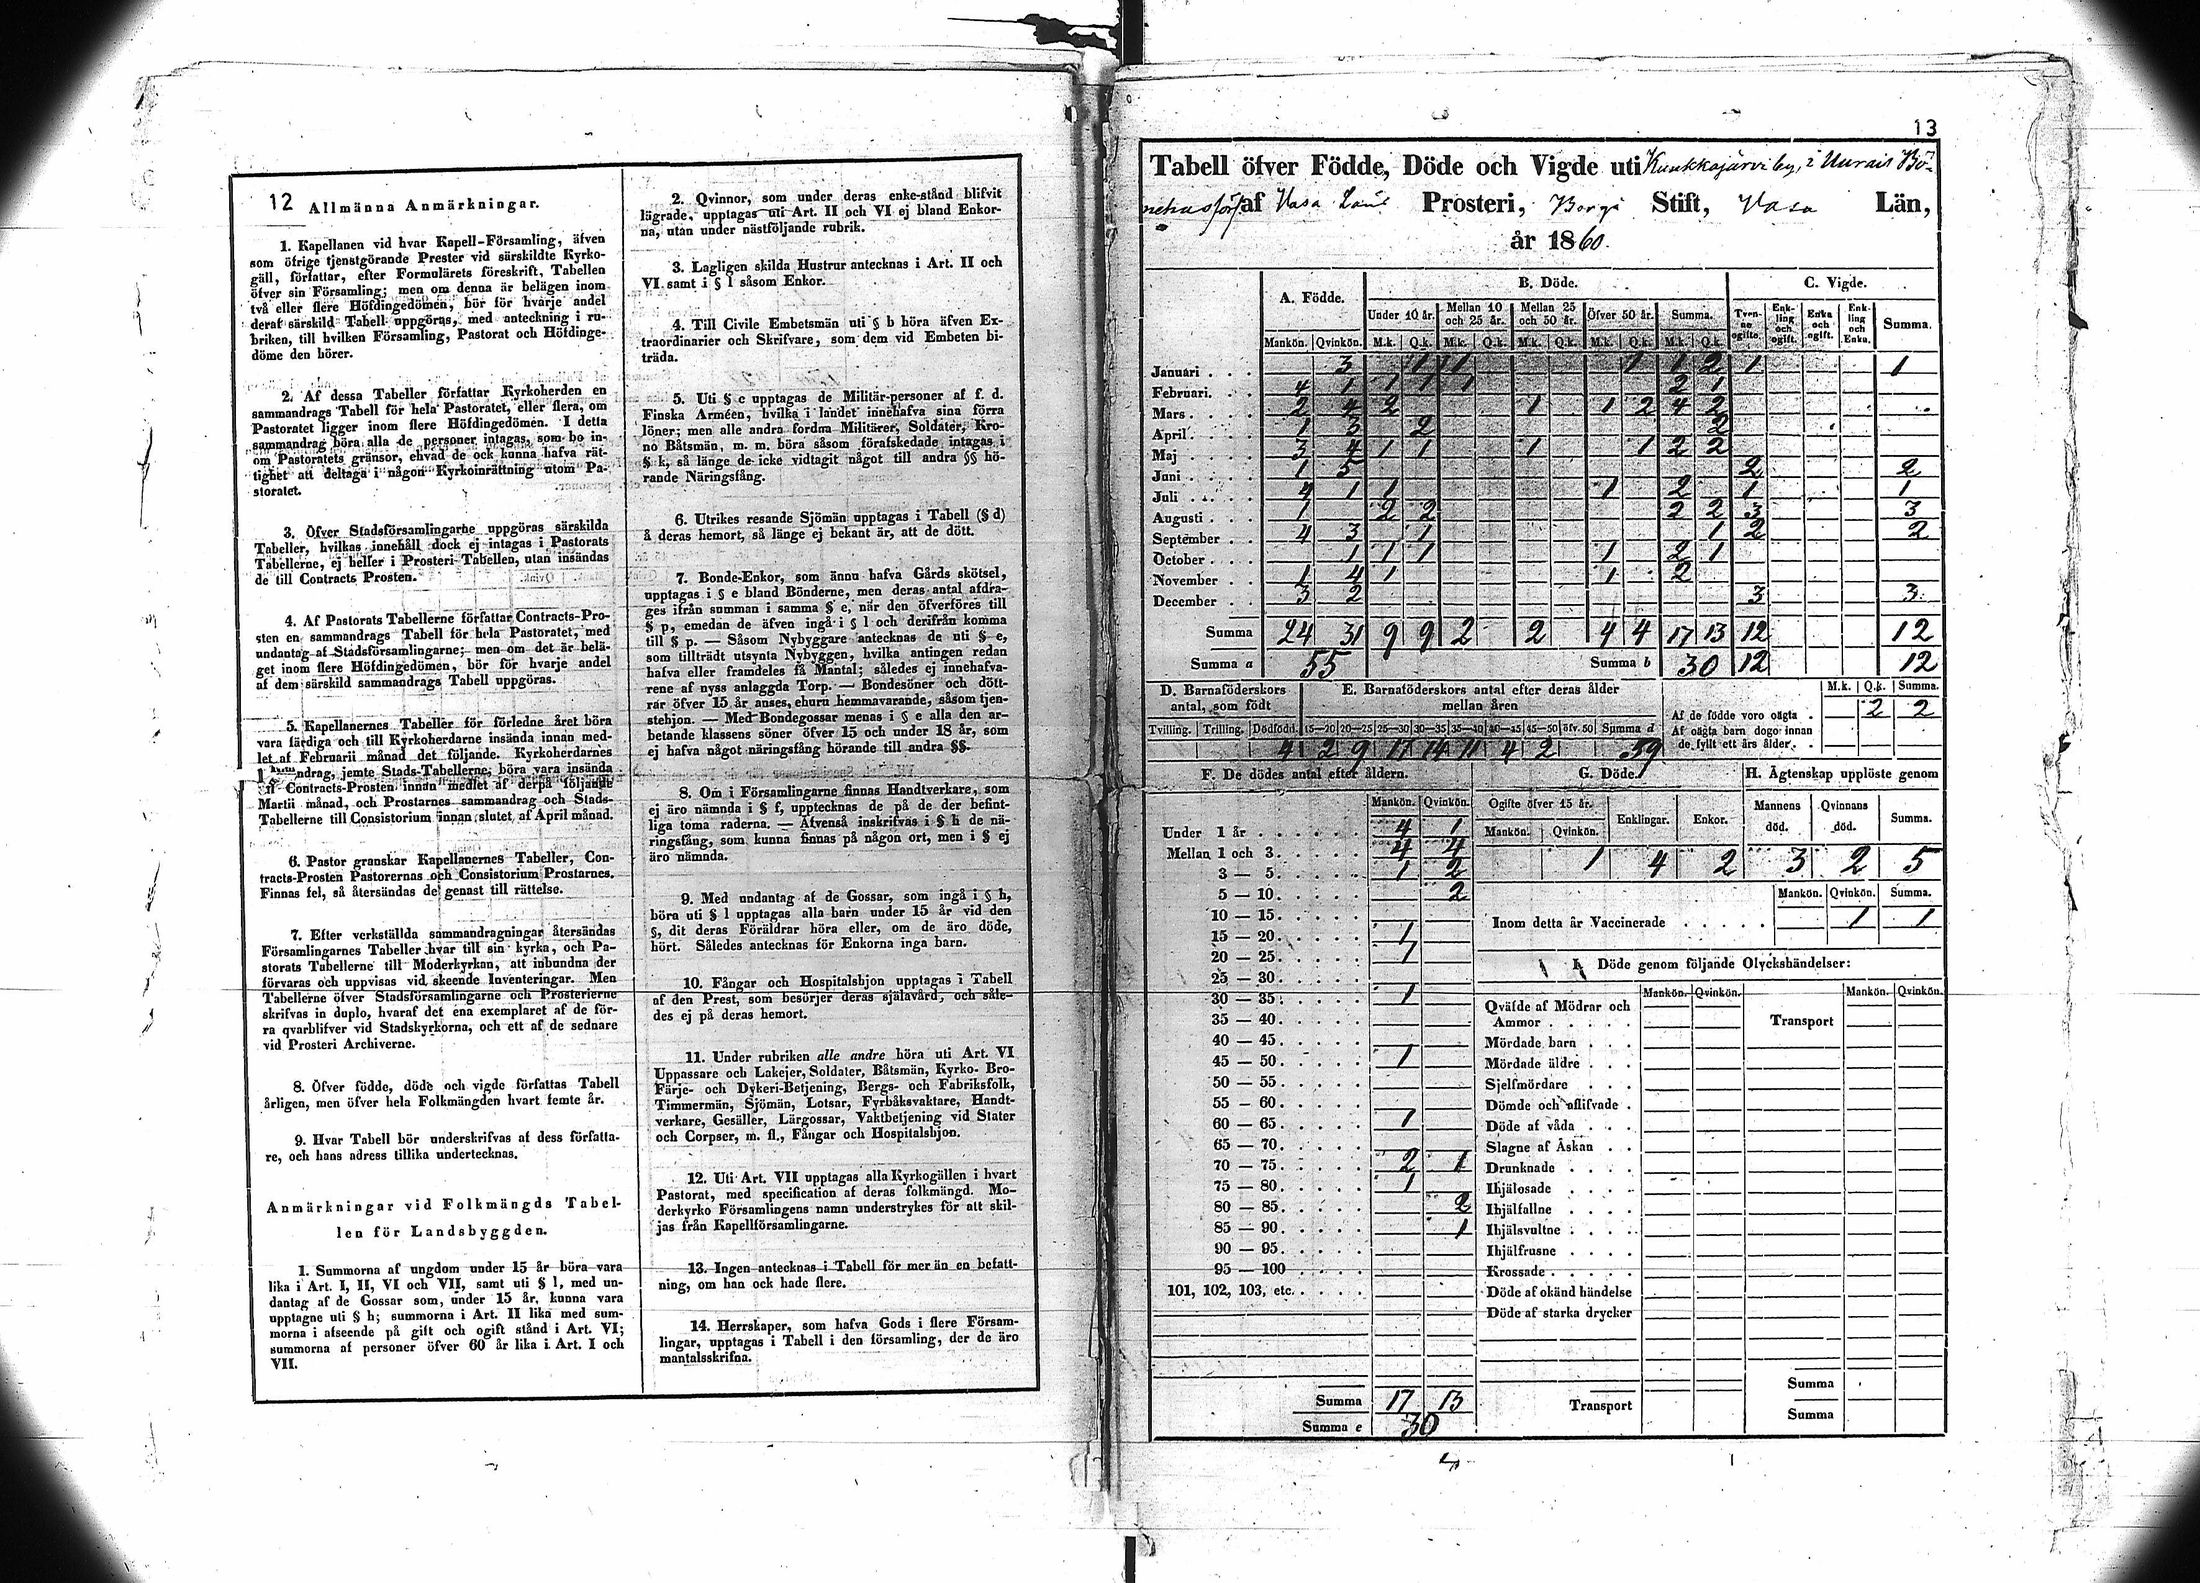 12 Allmänna Anmärkningar.
1. Kapellanen vid hvar Kapell-Församling, äfven
som öfrige tjenstgörande Prester vid särskildte Kyrko-
gäll, författar, efter Formulärets föreskrift, Tabellen
öfver sin Församling; men om denna är belägen inom
två eller flere Höfdingedömen, bör för hvarje andel
deraf särskild Tabell uppgöras, med anteckning i ru-
briken, till hvilken Församling, Pastorat och Höfdinge-
döme den hörer.
2. Af dessa Tabeller författar Kyrkoherden en
sammandrags Tabell för hela Pastoratet, eller flera, om
Pastoratet ligger inom flere Höfdingedömen. I detta
sammandrag böra alla de personer intagas, som bo in-
om Pastoratets gränsor, ehvad de ock kunna hafva rät-
tighet att deltaga i någon Kyrkoinrättning utom Pa-
storatet.
3. Öfver Stadsförsamlingarne uppgöras särskilda
Tabeller, hvilkas innehåll dock ej intages i Pastorats
Tabellerne, ej heller i Prosteri-Tabellen, utan insändas
de till Contracts Prosten.
4. Af Pastorats Tabellerne författar Contracts-Pro-
sten en sammandrags Tabell för hela Pastoratet, med
undantag af Stadsförsamlingarne; men om det är belä-
get inom flere Höfdingedömen, bör för hvarje andel
af dem särskild sammandrags Tabell uppgöras.
5. Kapellanernes Tabeller för förledne året böra
vara färdiga och till Kyrkoherdarne insända innan med-
let af Februarii månad det följande. Kyrkoherdarnes
ndrag, jemte Stads-Tabellerne, böra vara insända
Contracts-Prosten innan medlet af derpå följande
Martii månad, och Prostarnes sammandrag och Stads-
Tabellerne till Consistorium innan slutet af April månad.
6. Pastor granskar Kapellanernes Tabeller, Con-
tracts-Prosten Pastorernas och Consistorium Prostarnes.
Finnas fel, så återsändas de genast till rättelse.
7. Efter verkställda sammandragningar återsändas
Församlingarnes Tabeller hvar till sin kyrka, och Pa-
storats Tabellerne till Moderkyrkan, att inbundna der
förvaras och uppvisas vid skeende Inventeringar. Men
Tabellerne öfver Stadsförsamlingarne och Prosterierne
skrifvas in duplo, hvaraf det ena exemplaret af de för-
ra qvarblifver vid Stadskyrkorna, och ett af de sednare
vid Prosteri Archiverne.
8. Öfver födde, döde och vigde författas Tabell
årligen, men öfver hela Folkmängden hvart femte år.
9. Hvar Tabell bör underskrifvas af dess författa-
re, och hans adress tillika undertecknas.
Anmärkningar vid Folkmängds Tabel-
len för Landsbyggden.
1. Summorna af ungdom under 15 år böra vara
lika i Art. I, II, VI och VII, samt uti § l, med un-
dantag af de Gossar som, under 15 år, kunna vara
upptagne uti § h; summorna i Art. II lika med sum-
morna i afseende på gift och ogift stånd i Art. VI;
summorna af personer öfver 60 år lika i Art. I och
VII.
2. Qvinnor, som under deras enke-stånd blifvit
lägrade, upptagas uti Art. II och VI ej bland Enkor-
na, utan under nästföljande rubrik.
3. Lagligen skilda Hustrur antecknas i Art. II och
VI samt i § l såsom Enkor.
4. Till Civile Embetsmän uti § b höra äfven Ex-
traordinarier och Skrifvare, som dem vid Embeten bi-
träda.
5. Uti § c upptagas de Militär-personer af f. d.
Finska Arméen, hvilka i landet innehafva sina förra
löner; men alle andra fordna Militärer, Soldater, Kro-
no Båtsmän, m. m. böra såsom förafskedade intagas i
§ k, så länge de icke vidtagit något till andra §§ hö-
rande Näringsfång.
6. Utrikes resande Sjömän upptagas i Tabell (§ d)
å deras hemort, så länge ej bekant är, att de dött.
7. Bonde-Enkor, som ännu hafva Gårds skötsel,
upptagas i § e bland Bönderne, men deras antal afdra-
ges ifrån summan i samma § e, när den öfverföres till
§ p, emedan de äfven ingå i § l och derifrån komma
till § p. — Såsom Nybyggare antecknas de uti § e,
som tillträdt utsynta Nybyggen, hvilka antingen redan
hafva eller framdeles få Mantal; således ej innehafva-
rene af nyss anlaggda Torp. — Bondesöner och dött-
rar öfver 15 år anses, ehuru hemmavarande, såsom tjen-
stehjon. — Med Bondegossar menas i § e alla den ar-
betande klassens söner öfver 15 och under 18 år, som
ej hafva något näringsfång hörande till andra §§.
8. Om i Församlingarne finnas Handtverkare, som
ej äro nämnda i § f, upptecknas de på de der befint-
liga toma raderna. — Äfvenså inskrifvas i § h de nä-
ringsfång, som kunna finnas på någon ort, men i § ej
äro nämnda.
9. Med undantag af de Gossar, som ingå i § h,
böra uti § l upptagas alla barn under 15 år vid den
§, dit deras Föräldrar höra eller, om de äro döde,
hört. Således antecknas för Enkorna inga barn.
10. Fångar och Hospitalshjon upptagas i Tabell
af den Prest, som besörjer deras själavård, och såle-
des ej på deras hemort.
11. Under rubriken alle andre höra uti Art. VI
Uppassare och Lakejer, Soldater, Båtsmän, Kyrko- Bro-
Färje- och Dykeri-Betjening, Bergs- och Fabriksfolk,
Timmermän, Sjömän, Lotsar, Fyrbåksvaktare, Handt-
verkare, Gesäller, Lärgossar, Vaktbetjening vid Stater
och Corpser, m. fl., Fångar och Hospitalshjon.
12. Uti Art. VII upptagas alla Kyrkogällen i hvart
Pastorat, med specification af deras folkmängd. Mo-
derkyrko Församlingens namn understrykes för att skil-
jas från Kapellförsamlingarne.
13. Ingen antecknas i Tabell för mer än en befatt-
ning, om han ock hade flere.
14. Herrskaper, som hafva Gods i flere Försam-
lingar, upptagas i Tabell i den församling, der de äro
mantalsskrifna.
13
Tabell öfver Födde, Döde och Vigde uti Kuukkajärvi by, i Uurais Bö-
nehusförs af Vasa Läns Prosteri, Borgå Stift, Vasa Län,
år 1860.
A. Födde. B. Döde. C. Vigde.
Under 10 år. Mellan 10 och 25 år. Mellan 25 och 50 år. Öfver 50 år. Summa. Tven-ne ogifte. Enk-ling och ogift. Enka och ogift. Enk-ling och Enka. Summa.
Mankön. Qvinkön. M.k. Q.k. M.k. Q.k. M.k. Q.k. M.k. Q.k. M.k. Q.k.
Januari 3 1 1 1 1 2 1 1
Februari. 4 1 1 1 1 2 1
Mars 2 4 2 1 1 2 4 2
April 1 3 2 2
Maj 3 4 1 1 1 1 2 2
Juni 1 5 2 2
Juli 4 1 1 1 2 1 1
Augusti 1 2 2 2 2 3 3
September 4 3 1 1 2 2
October 1 1 1 1 2 1
November 1 4 1 1 2
December 3 2 3 3
Summa 24 31 9 9 2 2 4 4 17 13 12 12
Summa a 55 Summa b 30 12 12
D. Barnaföderskors antal, som födt
Tvilling. Trilling. Dödfödd.
4
E. Barnaföderskors antal efter deras ålder mellan åren
15—20 20—25 25—30 30—35 35—40 40—45 45—50 öfv. 50 Summa d
2 9 17 14 11 4 2 59
M.k. Q.k. Summa.
Af de födde voro oägta 2 2
Af oägta barn dogo innan
de fyllt ett års ålder.
F. De dödes antal efter åldern.
Mankön. Qvinkön.
Under 1 år 4 1
Mellan 1 och 3. 4 4
3 — 5. 1 2
5 — 10. 2
10 — 15.
15 — 20. 1
20 — 25. 1
25 — 30.
30 — 35. 1
35 — 40.
40 — 45.
45 — 50. 1
50 — 55.
55 — 60.
60 — 65. 1
65 — 70.
70 — 75. 2 1
75 — 80. 1
80 — 85. 2
85 — 90. 1
90 — 95.
95 — 100
101, 102, 103, etc.
Summa 17 13
Summa e 30
G. Döde.
Ogifte öfver 15 år. Enklingar. Enkor.
Mankön. Qvinkön.
1 4 2
H. Ägtenskap upplöste genom
Mannens död. Qvinnans död. Summa.
3 2 5
Mankön. Qvinkön. Summa.
Inom detta år Vaccinerade 1 1
I. Döde genom följande Olyckshändelser:
Mankön. Qvinkön. Mankön. Qvinkön.
Qväfde af Mödrar och
Ammor Transport
Mördade barn
Mördade äldre
Sjelfmördare
Dömde och aflifvade
Döde af våda
Slagne af Åskan
Drunknade
Ihjälosade
Ihjälfallne
Ihjälsvultne
Ihjälfrusne
Krossade
Döde af okänd händelse
Döde af starka drycker
Summa
Transport
Summa